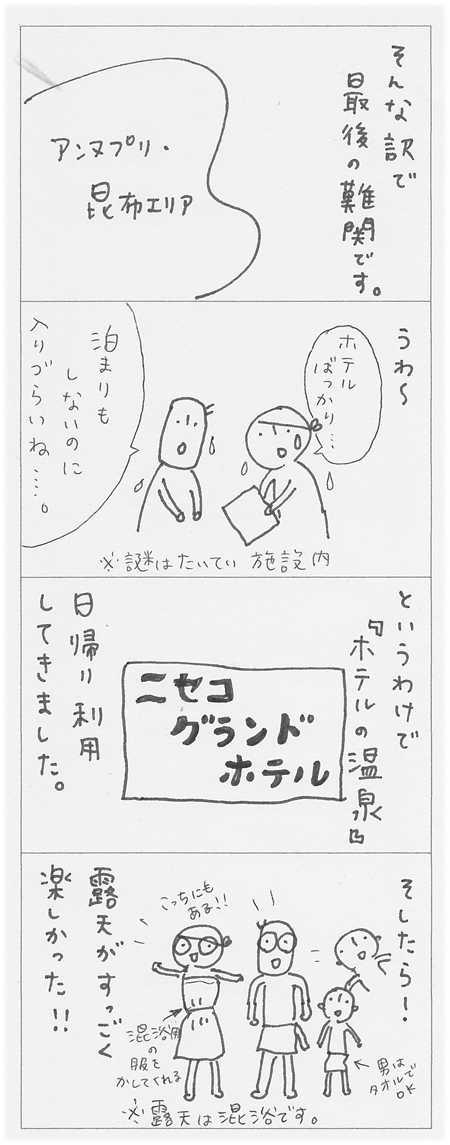 そんな訳で
最後の難関です。
アンヌプリ・
昆布エリア
うわ〜
ホテル
ばっかり…
泊まりも
しないのに
入りづらいね…。
※謎はたいてい施設内
というわけで
『ホテルの温泉』
ニセコ
グランド
ホテル
日帰り利用
してきました。
そしたら!
こっちにも
ある!!
露天がすっごく
楽しかった!!
混浴用
の
服を
かしてくれる
男は
タオルで
OK
※露天は混浴です。